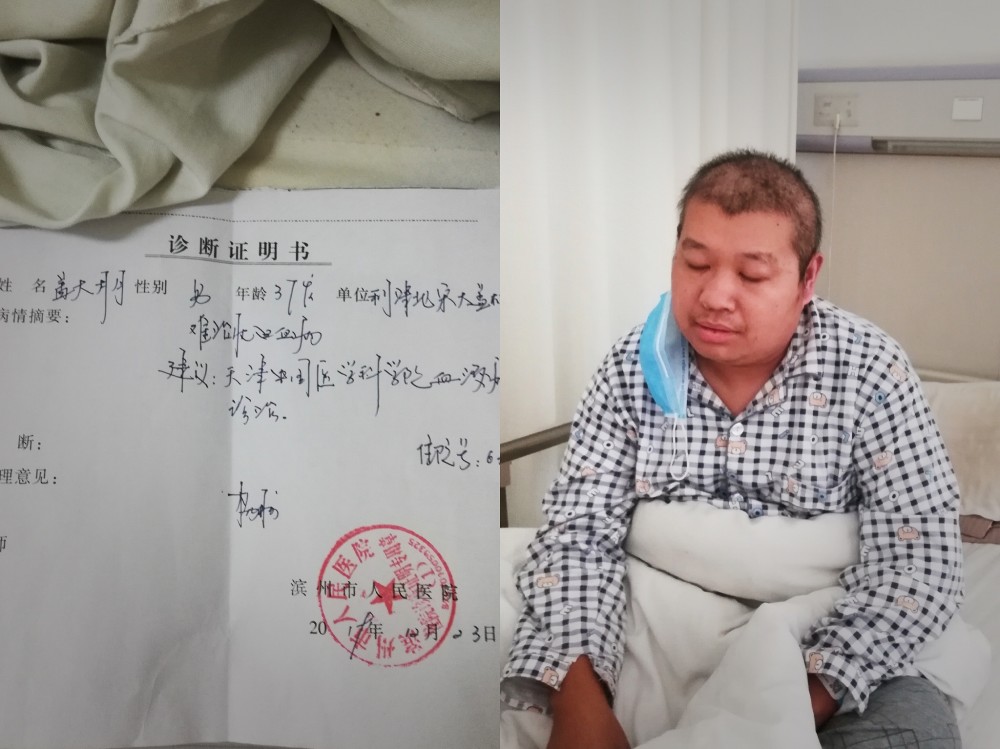 诊断证明书
姓 名 盖大朋 性别 男 年龄 37岁 单位 利津北宋大盖
病情摘要：
难治性白血病
建议：天津中国医学科学院血液病
诊治。
断：
住院号：6
理意见：
师
滨州市人民医院
滨州市人民医院
2019年12月23日